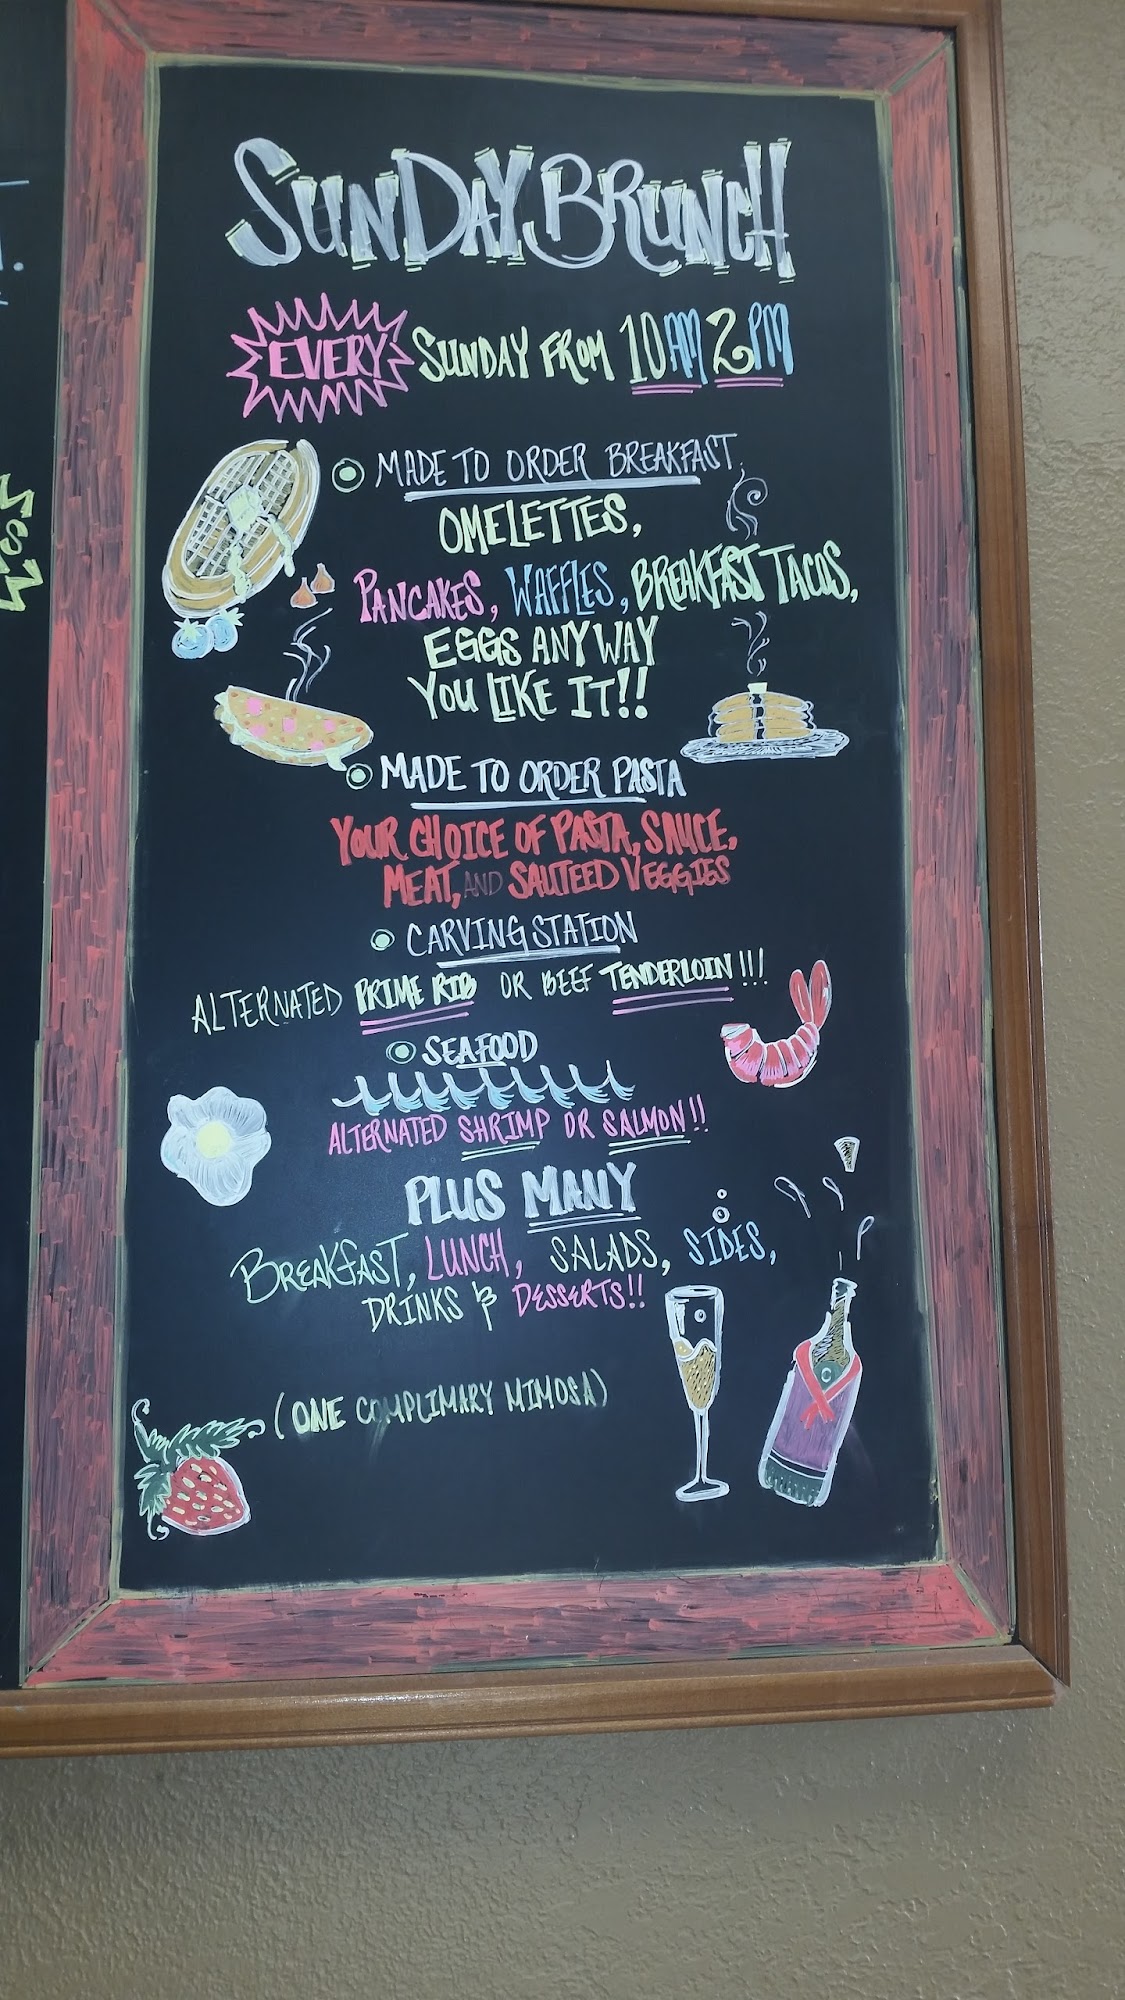 SUNDAY BRUNCH
EVERY SUNDAY FROM 10AM 2PM
MADE TO ORDER BREAKFAST
OMELETTES,
PANCAKES, WAFFLES, BREAKFAST TACOS,
EGGS ANY WAY
YOU LIKE IT!!
MADE TO ORDER PASTA
YOUR CHOICE OF PASTA, SAUCE,
MEAT, AND SAUTEED VEGGIES
CARVING STATION
ALTERNATED PRIME RIB OR BEEF TENDERLOIN!!!
SEAFOOD
ALTERNATED SHRIMP OR SALMON!!
PLUS MANY
BREAKFAST, LUNCH, SALADS, SIDES,
DRINKS & DESSERTS!!
(ONE COMPLIMARY MIMOSA)